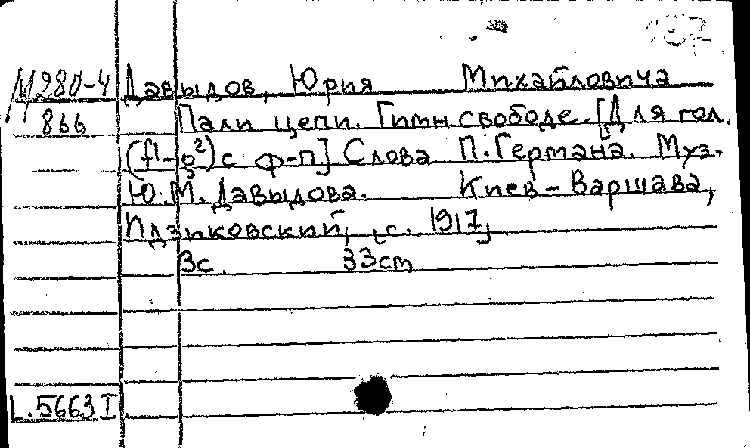 М280-4 Давыдов, Юрия Михайловича
866 Пали цепи. Гимн свободе. [Для гол.
(f¹-g²) с ф-п] Слова П. Германа. Муз.
Ю. М. Давыдова. Киев - Варшава,
Идзиковский, [с. 1917]
3с. 33cm
L.5663I